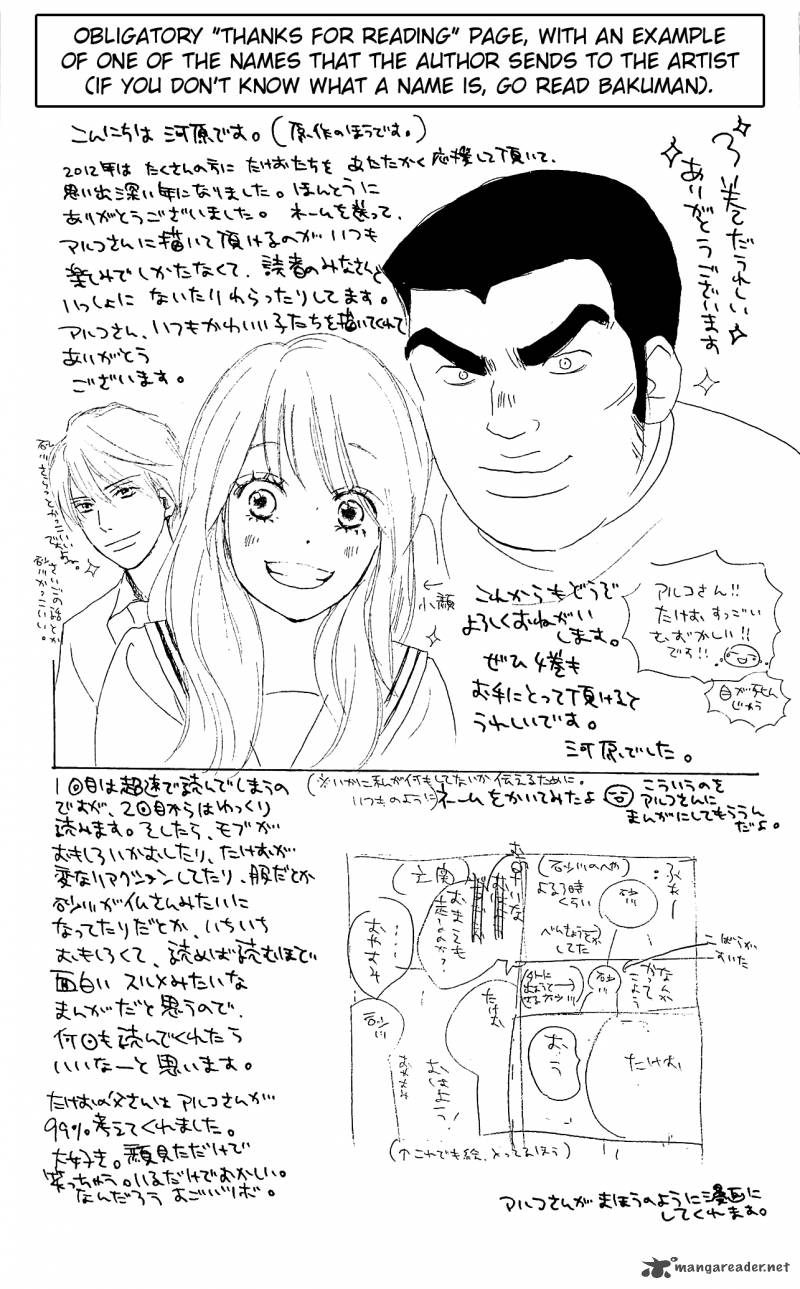 OBLIGATORY "THANKS FOR READING" PAGE, WITH AN EXAMPLE
OF ONE OF THE NAMES THAT THE AUTHOR SENDS TO THE ARTIST
(IF YOU DON'T KNOW WHAT A NAME IS, GO READ BAKUMAN).
こんにちは 河原です。(原作のほうです。)
2012年は たくさんの方に たけおたちを あたたかく 応援して頂いて、
思い出深い年になりました。ほんとうに
ありがとうございました。 ネームを送って、
アルコさんに描いて頂けるのが いつも
楽しみでしかたなくて、読者のみなさんと
いっしょに ないたりわらったりしてます。
アルコさん、いつもかわいい子たちを描いてくれて
ありがとう
ございます。
3巻でだうれしい
ありがとう
ございます
←
小顔
これからもどうぞ
よろしくおねがい
します。
ぜひ 4巻も
お手にとって頂けると
うれしいです。
河原でした。
アルコさん!!
たけお、すっごい
むずかしい!!
です!!
1回目は超速で読んでしまうの
ですが、2回目からはゆっくり
読みます。そしたら、モブが
おもしろいかおしたり、たけおが
変なリアクションしてたり、服だとか
砂川が仏さんみたいに
なってたりだとか、いちいち
おもしろくて、読めば読むほど
面白い スルメみたいな
まんがだと思うので、
何回も読んでくれたら
いいなーと思います。
たけおの父さんは アルコさんが
99%考えてくれました。
大好き。顔見ただけで
笑っちゃう。いるだけでおかしい。
なんだろう あごがツボ。
(※いかに私が何もしてないか伝えるために、
いつものように)ネームをかいてみたよ
こういうのを
アルコさんに
まんがにしてもらうん
だよ。
(砂川のへや)
よる9時
くらい
べんきょうとか
してた
砂川
なんか
かって
こよう
砂川
たけお
おう
(玄関)
おまえも
走るのか?
……
おやすみ
砂川
たけお
おはよう!
(↑これでも絵、とってるほう)
アルコさんが まほうのように漫画に
してくれます。
mangareader.net